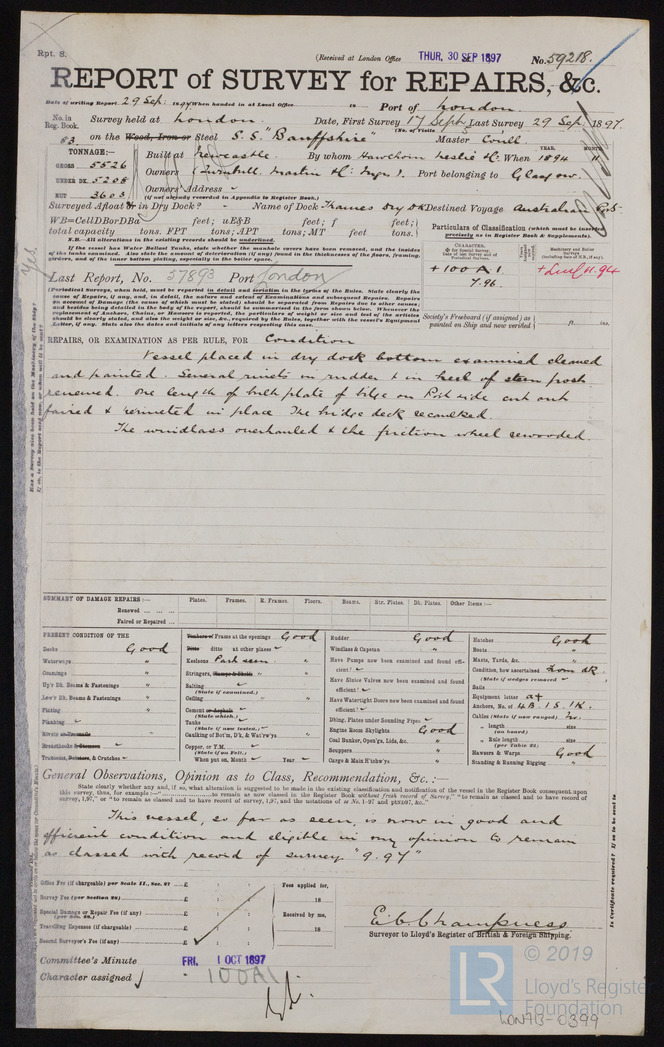 Rpt. 8.
(Received at London Office THUR, 30 SEP 1897
No. 59218.
REPORT of SURVEY for REPAIRS, &c.
Date of writing Report 29 Sep. 1897 When handed in at Local Office 18 Port of London.
No. in Reg. Book. Survey held at London. Date, First Survey 17 Sept Last Survey 29 Sep. 1897.
(No. of Visits 5
83. on the Wood, Iron or Steel S.S. "Banffshire" Master Coull
TONNAGE:—
GROSS 5526
UNDER DK. 5208
NET 3603
Built at Newcastle. By whom Hawthorn Leslie & Co. When YEAR. 1894 MONTH. 11
Owners (Turnbull, Martin & Co. Mgrs). Port belonging to Glasgow.
Owners' Address
(if not already recorded in Appendix to Register Book.)
Surveyed Afloat or in Dry Dock? Name of Dock Thames Dry Dk Destined Voyage Australian
WB=CellDBorDBa feet; uE&B feet; f feet;
total capacity tons. FPT tons; APT tons; MT feet tons.
N.B.—All alterations in the existing records should be underlined.
If the vessel has Water Ballast Tanks, state whether the manhole covers have been removed, and the insides
of the tanks examined. Also state the amount of deterioration (if any) found in the thicknesses of the floors, framing,
girders, and of the inner bottom plating, especially in the boiler space.
Particulars of Classification (which must be inserted
precisely as in Register Book & Supplements).
CHARACTER,
+ 100 A 1.
7.96.
+ LMC 11.94
Last Report, No. 57893 Port London
(Periodical Surveys, when held, must be reported in detail and seriatim in the terms of the Rules. State clearly the
cause of Repairs, if any, and, in detail, the nature and extent of Examinations and subsequent Repairs. Repairs
on account of Damage (the cause of which must be stated) should be separated from Repairs due to other causes;
and besides being detailed in the body of the report, should be summarised in the form shown below. Whenever the
replacement of Anchors, Chains, or Hawsers is reported, the particulars of weight or size and test of the articles
should be clearly stated, and also the weight or size, &c., required by the Rules, together with the vessel's Equipment
Letter, if any. State also the dates and initials of any letters respecting this case.
Society's Freeboard (if assigned) as
painted on Ship and now verified ft. ins.
REPAIRS, OR EXAMINATION AS PER RULE, FOR Condition
Vessel placed in dry dock bottom examined cleaned
and painted. Several rivets in rudder & in heel of stern post
renewed. One length of bulb plate of bilge on Port side cut out
faired & reriveted in place The bridge deck recaulked.
The windlass overhauled & the friction wheel rewooded.
SUMMARY OF DAMAGE REPAIRS:—
Plates. Frames. R. Frames. Floors. Beams. Str. Plates. Dk. Plates. Other Items:—
Renewed
Faired or Repaired
PRESENT CONDITION OF THE
Decks Good
Waterways "
Coamings "
Up'r Dk. Beams & Fastenings "
Low'r Dk. Beams & Fastenings "
Plating "
Planking
Rivets or Treenails "
Breasthooks & Stemson
Transoms, Pointers, & Crutches
Timbers or Frames at the openings Good
Ditto ditto at other places
Keelsons Part seen. "
Stringers, Clamps & Shelfs "
Salting
(State if examined.)
Ceiling "
Cement or Asphalt
(State which.)
Tanks
(State if now tested.)
Caulking of Bot'm, D'k, & Wat'rw'ys "
Copper, or Y.M.
(State if on Felt.)
When put on, Month Year
Rudder Good
Windlass & Capstan "
Have Pumps now been examined and found efficient?
Have Sluice Valves now been examined and found efficient?
Have Watertight Doors now been examined and found efficient?
Dbling. Plates under Sounding Pipes
Engine Room Skylights Good
Coal Bunker, Open'gs, Lids, &c. "
Scuppers "
Cargo & Main H'tchw'ys "
Hatches Good
Boats "
Masts, Yards, &c. "
Condition, how ascertained from dk.
(State if wedges removed
Sails
Equipment letter a+
Anchors, No. of 4B. 1S. 1K.
Cables (State if now ranged)
" length
(on board)
" Rule length
(per Table 22)
Hawsers & Warps Good
Standing & Running Rigging "
General Observations, Opinion as to Class, Recommendation, &c.:—
State clearly whether any, and if so, what alteration is suggested to be made in the existing classification and notification of the vessel in the Register Book consequent upon
this survey, thus, for example:—"to remain as now classed in the Register Book without fresh record of Survey," "to remain as classed and to have record of
survey, 1,97," or "to remain as classed and to have record of survey, 1,97, and the notations of ss No. 1-97 and pSND97, &c."
This vessel, so far as seen, is now in good and
efficient condition and eligible in my opinion to remain
as classed with record of survey "9.97"
Office Fee (if chargeable) per Scale II., Sec. 27 £ : :
Survey Fee (per Section 28) £ : :
Special Damage or Repair Fee (if any) £ : :
(per Sec. 28.)
Travelling Expenses (if chargeable) £ : :
Second Surveyor's Fee (if any) £ : :
Fees applied for,
18
Received by me,
18
E. C. Champness
Surveyor to Lloyd's Register of British & Foreign Shipping.
Committee's Minute FRI. 1 OCT 1897
Character assigned 100A1
LR
© 2019
Lloyd's Register
Foundation
LON713-0399